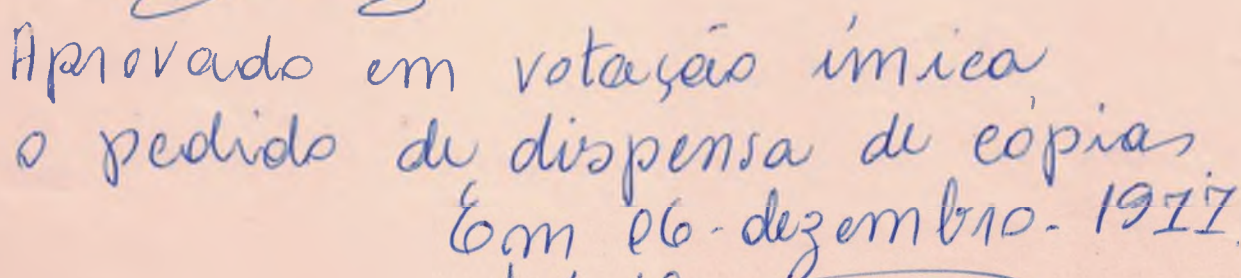 Aprovado em votação única
o pedido de dispensa de cópias
Em 06-dezembro-1977